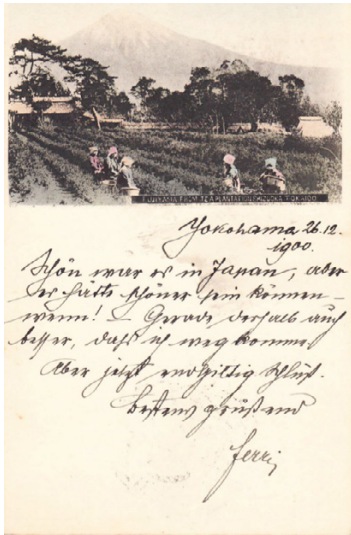 FUJIYAMA FROM TEA PLANTATION
Yokohama 26.12.
1900.
Schön war es in Japan, aber
es hätte schöner sein können –
wenn! – Gerade deshalb auch
besser, daß ich wegkomme.
Aber jetzt endgiltig Schluß.
Bestens grüßend
Ferri